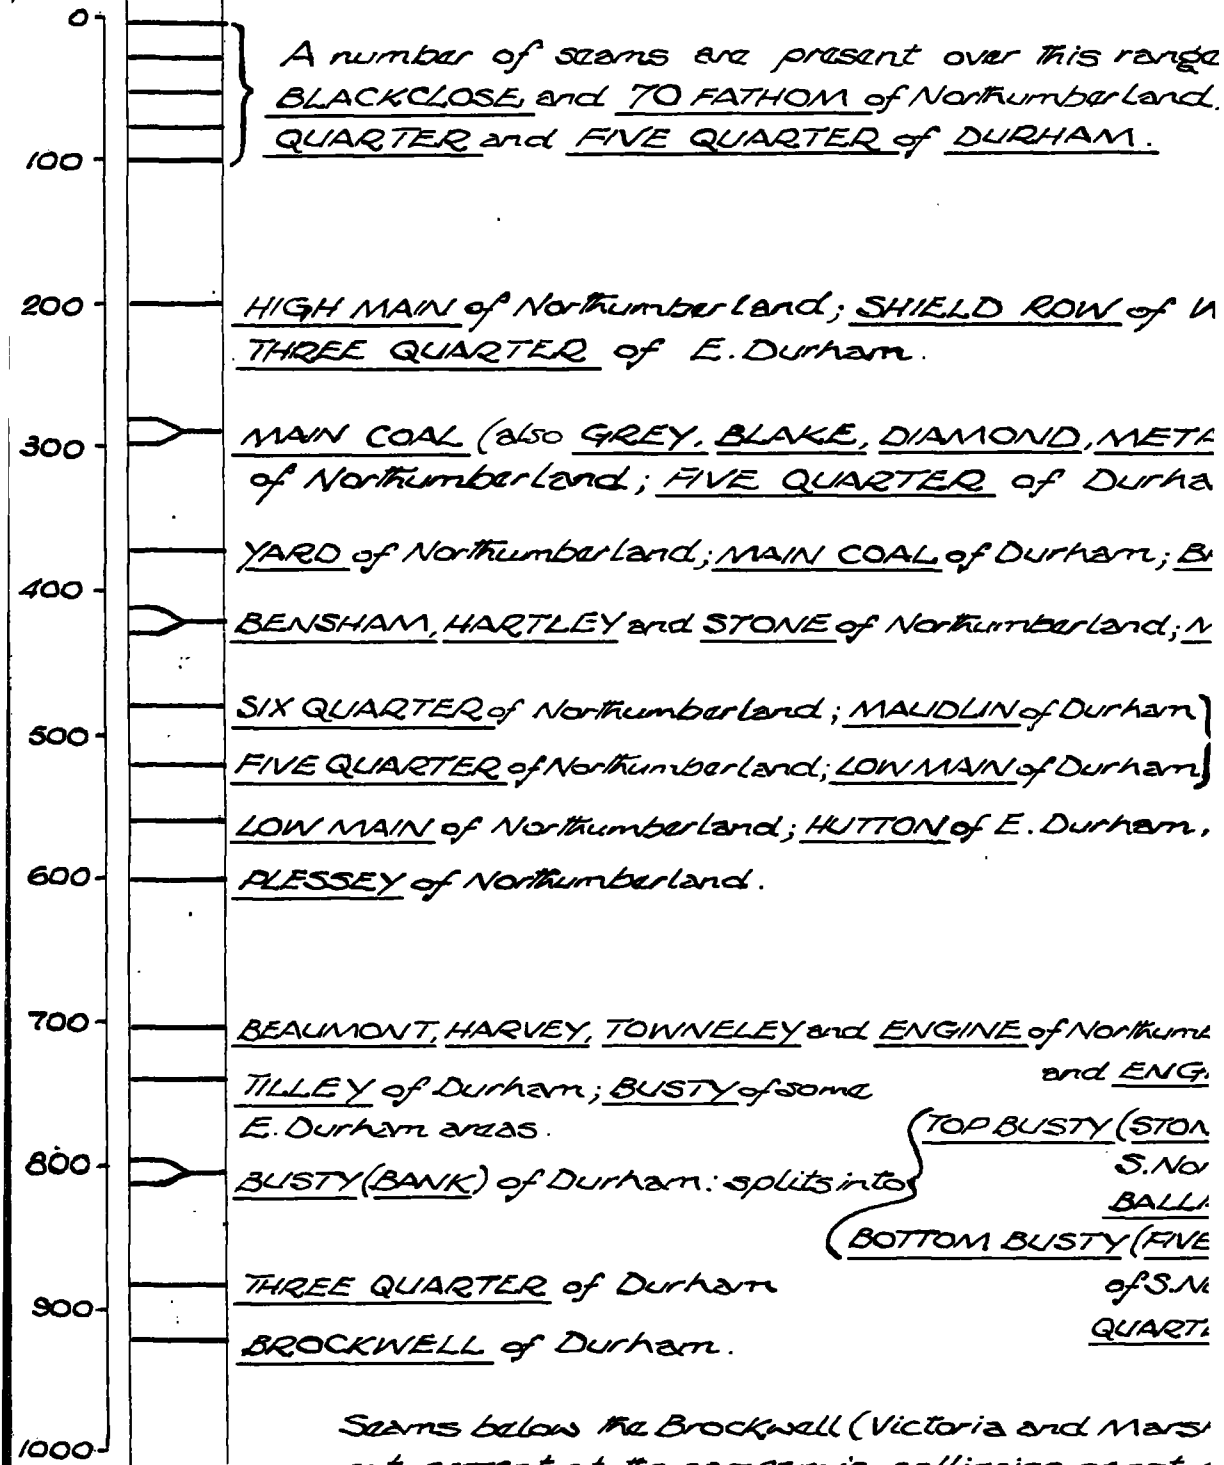 0
A number of seams are present over this range
BLACKCLOSE, and 70 FATHOM of Northumberland,
QUARTER and FIVE QUARTER of DURHAM.
100
200
HIGH MAIN of Northumberland; SHIELD ROW of
THREE QUARTER of E. Durham.
300
MAIN COAL (also GREY, BLAKE, DIAMOND, META
of Northumberland; FIVE QUARTER of Durha
YARD of Northumberland; MAIN COAL of Durham; B
400
BENSHAM, HARTLEY and STONE of Northumberland;
SIX QUARTER of Northumberland; MAUDLIN of Durham
500
FIVE QUARTER of Northumberland; LOW MAIN of Durham
LOW MAIN of Northumberland; HUTTON of E. Durham,
600
PLESSEY of Northumberland.
700
BEAUMONT, HARVEY, TOWNELEY and ENGINE of Northumb
and ENG
TILLEY of Durham; BUSTY of some
E. Durham areas.
TOP BUSTY (STON
S. Nor
800
BUSTY (BANK) of Durham: splits into
BALLI
BOTTOM BUSTY (FIVE
THREE QUARTER of Durham
of S. No
900
QUARTE
BROCKWELL of Durham.
Seams below the Brockwell (Victoria and Mars
1000